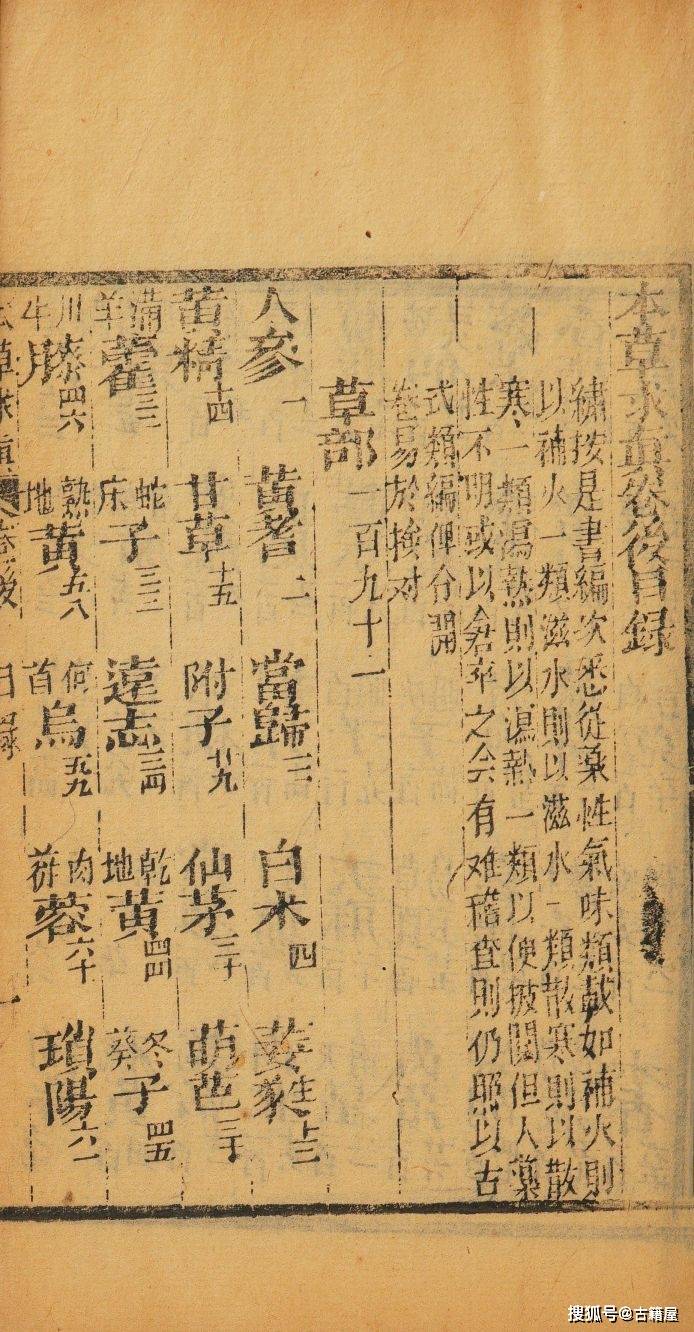 本草求真卷後目録
繡按是書編次悉従藥性氣味類載如補火則
以補火一類滋水則以滋水一類散寒則以散
寒一類瀉熱則以瀉熱一類以便披閱但人藥
性不明或以倉卒之会有难稽查則仍照以古
式類編俾分開
卷易於捡对
草部一百九十二
人參一 黃耆二 當歸三 白朮四 萎蕤
黃精十四 甘草十五 附子廿九 仙茅三十
羊藿三二 蛇床子三三 遠志三四 乾地黃四四 冬葵子四五
川牛膝四六 熟地黃五八 何首烏五九 肉蓯蓉六十 瑣陽六一
草求真 卷後 目録 一
搜狐号@古籍屋